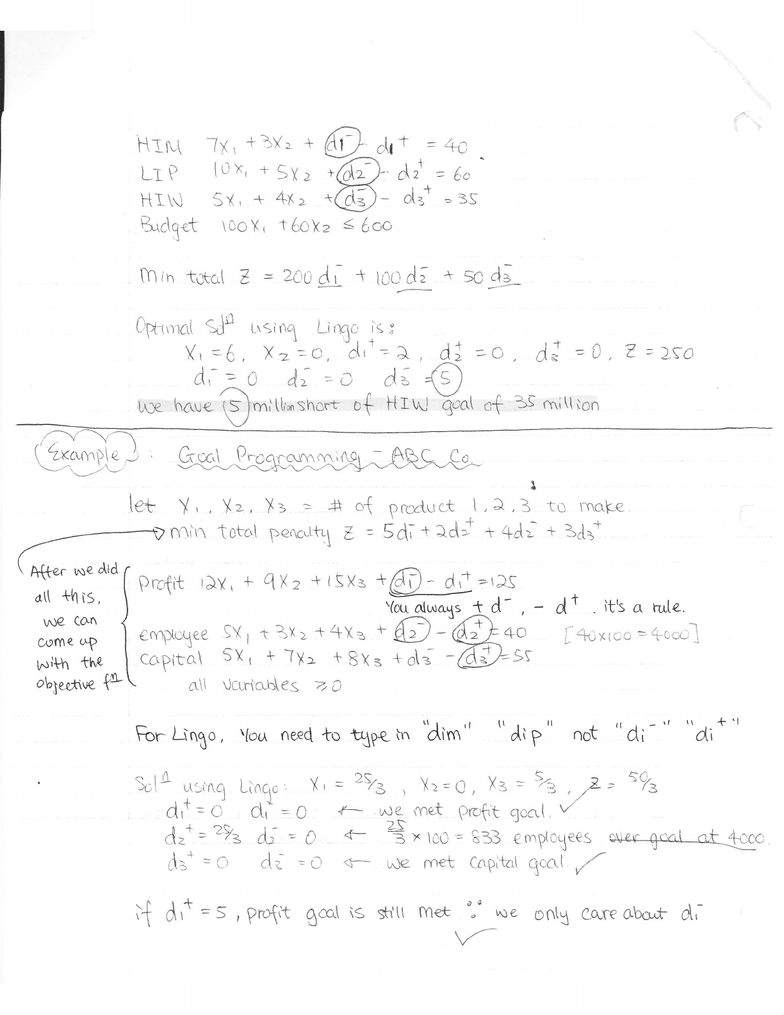 HIM 7x₁ + 3x₂ + d₁⁻ - d₁⁺ = 40
LIP 10x₁ + 5x₂ + d₂⁻ - d₂⁺ = 60
HIW 5x₁ + 4x₂ + d₃⁻ - d₃⁺ = 35
Budget 100x₁ + 60x₂ ≤ 600
Min total Z = 200d₁⁻ + 100d₂⁻ + 50d₃⁻
Optimal Solⁿ using Lingo is:
X₁=6, X₂=0, d₁⁺=2, d₂⁺=0, d₃⁺=0, Z=250
d₁⁻=0 d₂⁻=0 d₃⁻=5
We have 5 million short of HIW goal of 35 million
Example: Goal Programming - ABC Co.
let X₁, X₂, X₃ = # of product 1, 2, 3 to make.
→ min total penalty Z = 5d₁⁻ + 2d₂⁺ + 4d₂⁻ + 3d₃⁺
After we did
all this,
we can
come up
with the
objective fⁿ
Profit 12x₁ + 9x₂ + 15x₃ + d₁⁻ - d₁⁺ = 125
You always + d⁻, - d⁺. it's a rule.
employee 5x₁ + 3x₂ + 4x₃ + d₂⁻ - d₂⁺ = 40 [40x100 = 4000]
capital 5x₁ + 7x₂ + 8x₃ + d₃⁻ - d₃⁺ = 55
all variables ≥0
For Lingo, You need to type in "dim" "dip" not "di⁻" "di⁺"
Solⁿ using Lingo: X₁ = 25/3, X₂=0, X₃ = 5/3, Z = 50/3
d₁⁺=0 d₁⁻=0 ← we met profit goal. ✓
d₂⁺=25/3 d₂⁻=0 ← 25/3 x 100 = 833 employees over goal at 4000.
d₃⁺=0 d₃⁻=0 ← we met capital goal ✓
if d₁⁺=5, profit goal is still met ∵ we only care about d₁⁻
✓